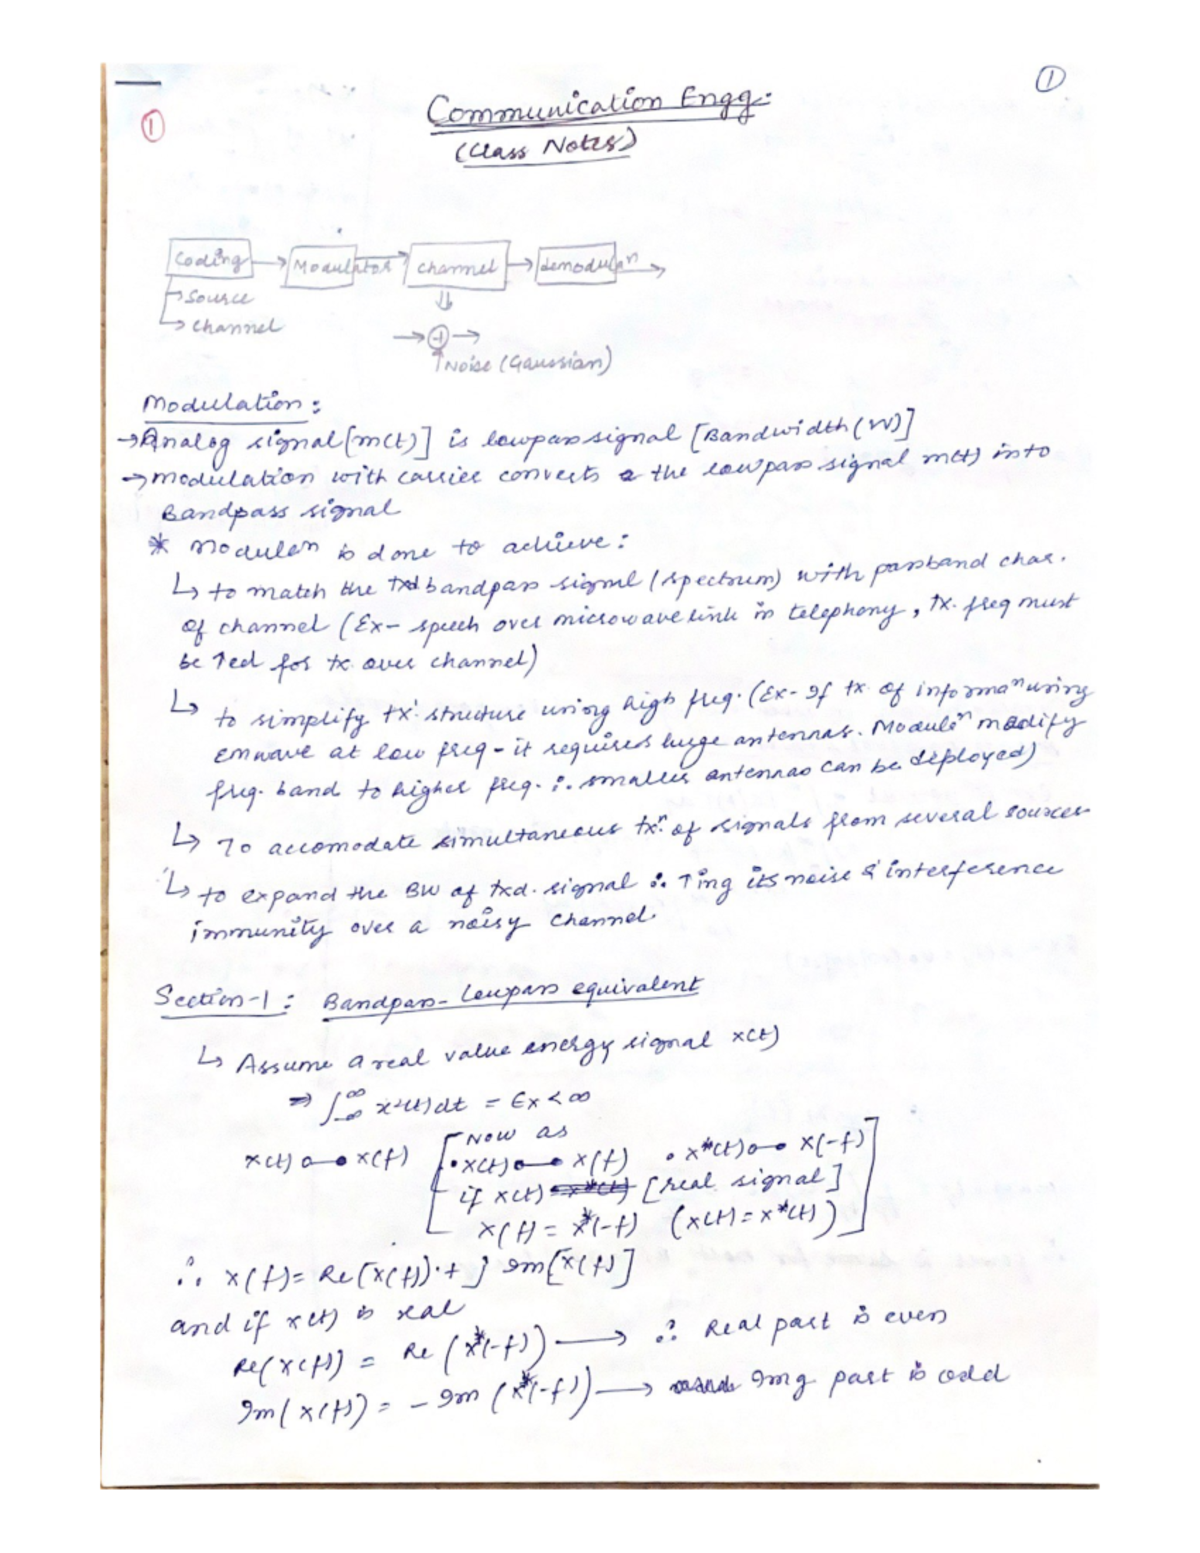 ①
①
Communication Engg.
(Class Notes)
Coding → Modulator → Channel → demodulaⁿ →
→ Source
→ Channel
⇓
→ (+) →
↑ Noise (Gaussian)
Modulation :
→ Analog signal [m(t)] is lowpass signal [Bandwidth (W)]
→ modulation with carrier converts the lowpass signal m(t) into
Bandpass signal
* Modulaⁿ is done to achieve :
↳ to match the txd bandpass signal (spectrum) with passband char.
of channel (Ex- speech over microwave link in telephony, tx. freq must
be ↑ed for tx. over channel)
↳ to simplify tx' structure using high freq. (Ex- If tx. of informaⁿ using
emwave at low freq - it requires huge antennas. Modulⁿ modify
freq. band to higher freq. ∴ smaller antennas can be deployed)
↳ To accomodate simultaneous txⁿ of signals from several sources
↳ to expand the BW of txd. signal ∴ ↑ing its noise & interference
immunity over a noisy channel.
Section-1 : Bandpass- Lowpass equivalent
↳ Assume a real value energy signal x(t)
⇒ ∫_{-∞}^{∞} x²(t) dt = Ex < ∞
Now as
x(t) o—• X(f) [ • x(t) o—• X(f) • x*(t) o—• X(-f) ]
if x(t) [real signal]
X(f) = X*(-f) (x(t) = x*(t))
∴ X(f) = Re[X(f)] + j Im[X(f)]
and if x(t) is real
Re(X(f)) = Re (X*(-f)) ⟶ ∴ Real part is even
Im(X(f)) = - Im (X*(-f)) ⟶ Img part is odd